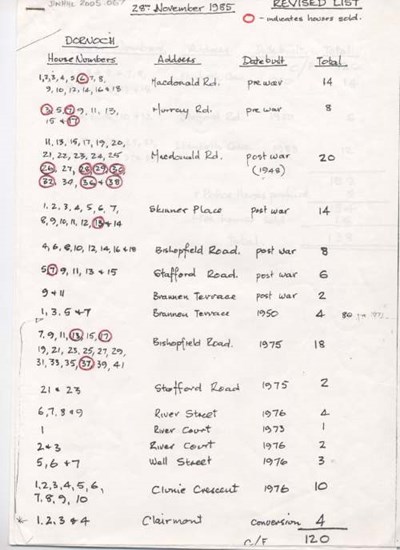 28th November 1985
REVISED LIST
- indicates houses sold.
DORNOCH
House Numbers Address Date built Total
1,2,3,4,5,6,7,8,
9,10,12,14,16 & 18 Macdonald Rd. pre war 14
3,5,7,9,11,13,
15 & 17 Murray Rd. pre war 8
11,13,15,17,19,20,
21,22,23,24,25
26,27,28,29,30 Macdonald Rd. post war 20
32,34,36 & 38 (1948)
1,2,3,4,5,6,7,
8,9,10,11,12,13 & 14 Skinner Place post war 14
4,6,8,10,12,14,16 & 18 Bishopfield Road. post war 8
5,7,9,11,13 & 15 Stafford Road. post war 6
9 & 11 Brannen Terrace post war 2
1,3,5 & 7 Brannen Terrace 1950 4 80
7,9,11,13,15,17,
19,21,23,25,27,29, Bishopfield Road. 1975 18
31,33,35,37,39,41
21 & 23 Stafford Road 1975 2
6,7,8 & 9 River Street 1976 4
1 River Court 1973 1
2 & 3 River Court 1976 2
5,6 & 7 Well Street 1976 3
1,2,3,4,5,6, Clunie Crescent 1976 10
7,8,9,10
1,2,3 & 4 Clairmont Conversion 4
C/F 120